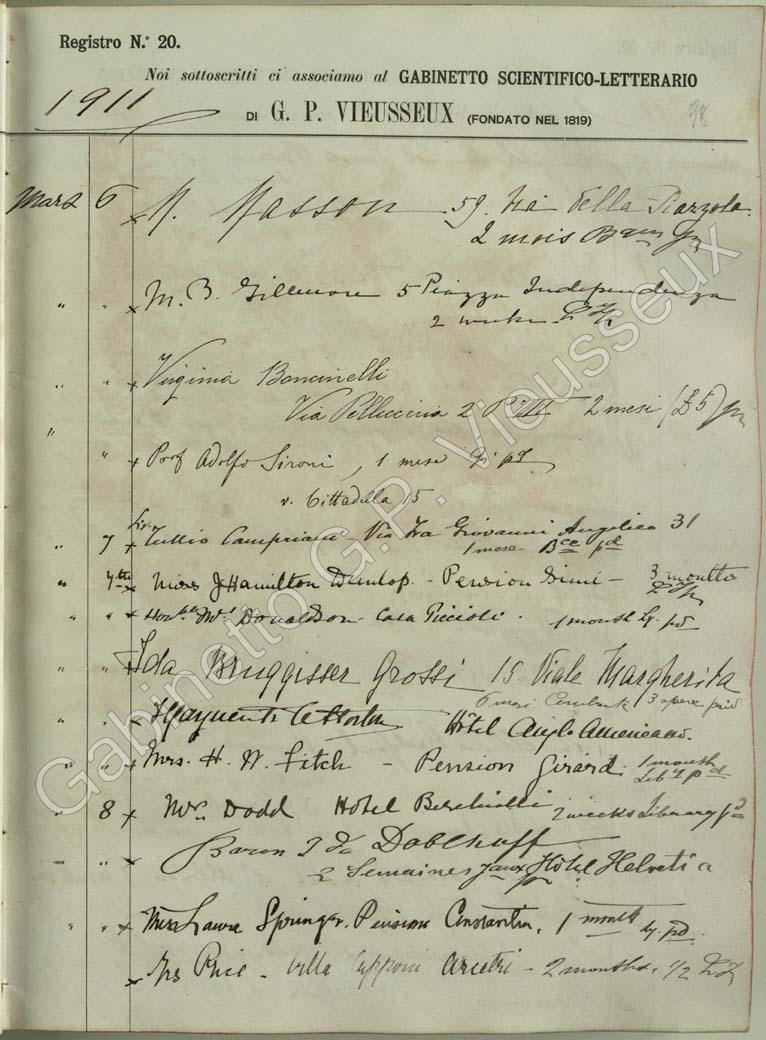 Registro N.° 20.
Noi sottoscritti ci associamo al GABINETTO SCIENTIFICO-LETTERARIO
1911
DI G. P. VIEUSSEUX (FONDATO NEL 1819)
38
Mars 6 x M. Masson 59. Via della Piazzola.
2 mois
" " x M. B. 5 Piazza Independenza
2 weeks
" " x Virginia Boncinelli
Via Pellicceria 2 2 mesi (£5)
" " x Prof Adolfo Sironi, 1 mese
v. Cittadella 15
" 7 x Tullio Campriani - Via Fra Giovanni Angelico 31
1 mese Bce pd
" 7th x Miss J Hamilton Dunlop. - Pension Simi - 3 months
" " x Honble Mrs Donaldson. Casa Piccioli. 1 month Ly. pd
" " Ida Bruggisser Grossi 15 Viale Margherita
3 opere
" " x Hôtel Anglo Americano.
" " x Mrs. H. W. Fitch - Pension Girard. 1 month
pd
" 8 x Mr. Dodd Hotel Berchielli 2 weeks Library pd
" " x Baron Doblhoff
2 Semaines Hôtel Helvetia
" " x Miss Laura Springer. Pension Constantin. 1 month
Ly. pd.
x Mrs Price - Villa Capponi Arcetri - 2 months. 1/2
Gabinetto G.P. Vieusseux